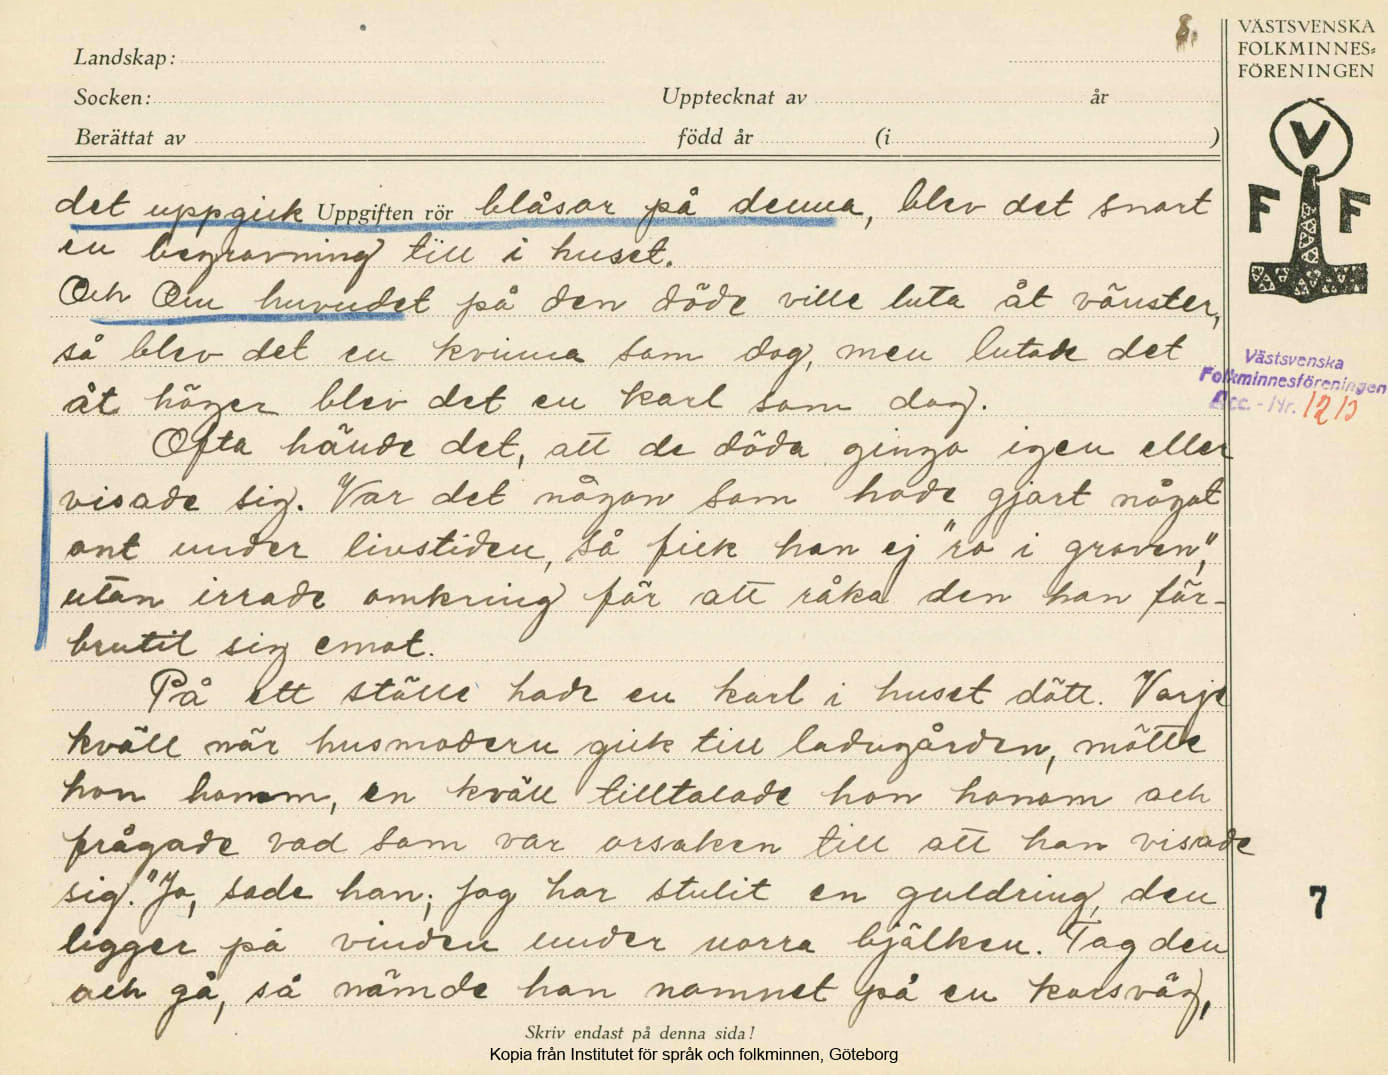 8.
VÄSTSVENSKA
FOLKMINNES=
FÖRENINGEN
Landskap:
Socken: Upptecknat av år
Berättat av född år (i )
V
F F
det uppgick Uppgiften rör blåsor på denna, blev det snart
en begravning till i huset.
Och Om huvudet på den döde ville luta åt vänster,
så blev det en kvinna som dog, men lutade det
åt höger blev det en karl som dog.
Västsvenska
Folkminnesföreningen
Acc. - Nr. 1210
Ofta hände det, att de döda gingo igen eller
visade sig. Var det någon som hade gjort något
ont under livstiden, så fick han ej "ro i graven",
utan irrade omkring för att råka den han för-
brutit sig emot.
På ett ställe hade en karl i huset dött. Varje
kväll när husmodern gick till ladugården, mötte
hon honom, en kväll tilltalade hon honom och
frågade vad som var orsaken till att han visade
sig. "Jo, sade han; jag har stulit en guldring, den
ligger på vinden under norra bjälken. Tag den
och gå, så nämde han namnet på en korsväg,
7
Skriv endast på denna sida!
Kopia från Institutet för språk och folkminnen, Göteborg